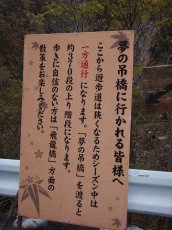 夢の吊橋に行かれる皆様へ
ここから遊歩道は狭くなるためシーズン中は
一方通行になります。「夢の吊橋」を渡ると
約370段の上り階段になります。
歩きに自信のない方は「飛龍橋」方面の
散策をお楽しみください。